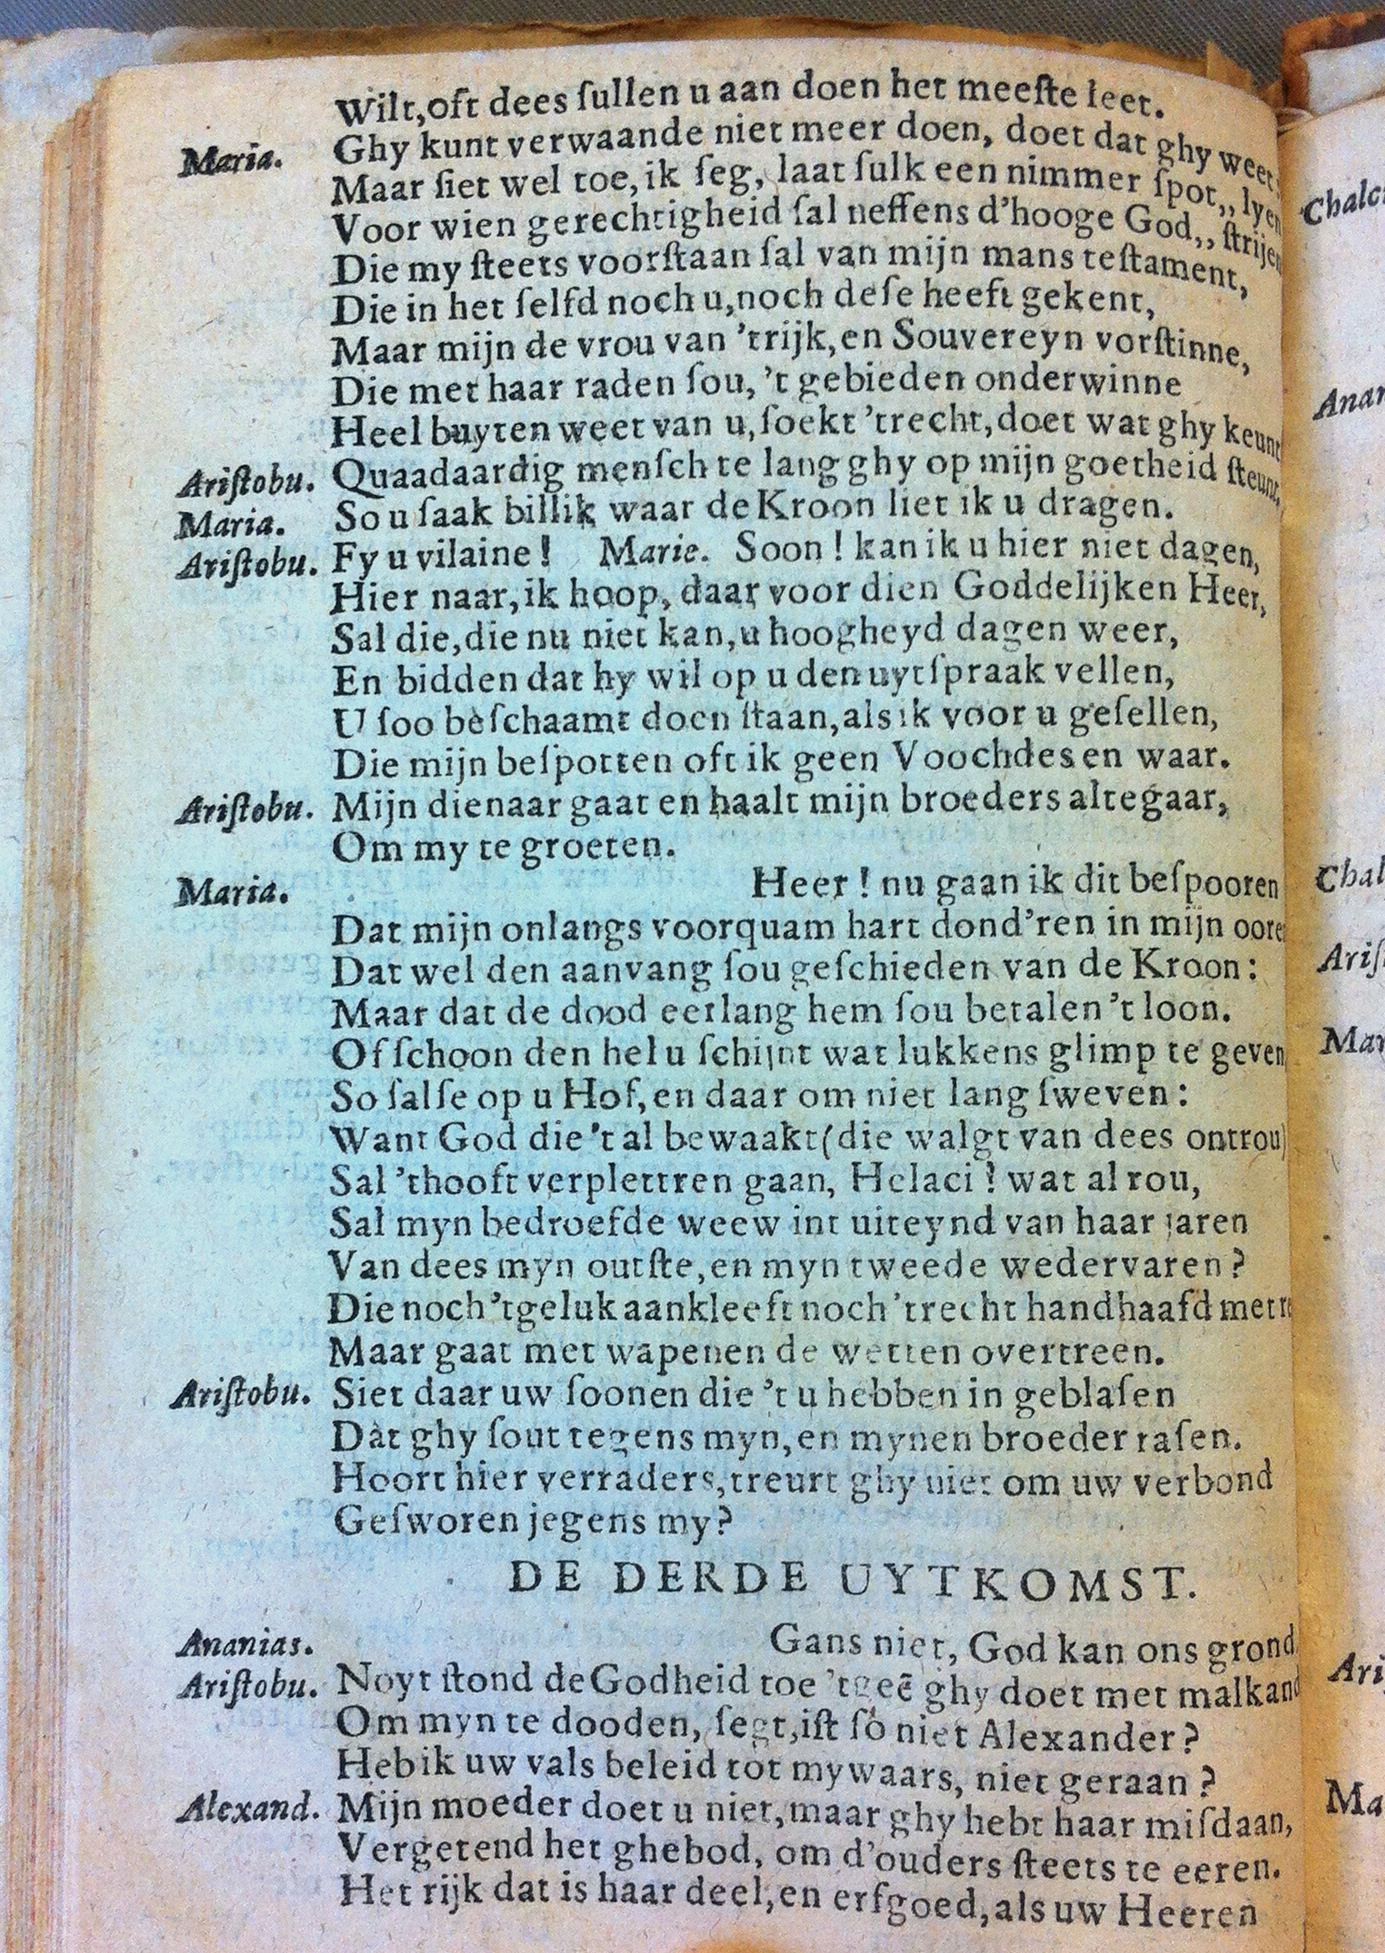 Wilt, oft dees ſullen u aan doen het meeſte leet.
Maria. Ghy kunt verwaande niet meer doen, doet dat ghy weet:
Maar ſiet wel toe, ik ſeg, laat ſulk een nimmer ſpot,, lyen
Voor wien gerechtigheid ſal neffens d'hooge God,, ſtrijen
Die my ſteets voorſtaan ſal van mijn mans teſtament,
Die in het ſelfd noch u, noch deſe heeft gekent,
Maar mijn de vrou van 'trijk, en Souvereyn vorſtinne,
Die met haar raden ſou, 't gebieden onderwinne
Heel buyten weet van u, ſoekt 'trecht, doet wat ghy keunt
Ariſtobu. Quaadaardig menſch te lang ghy op mijn goetheid ſteunt,
Maria. So u ſaak billik waar de Kroon liet ik u dragen.
Ariſtobu. Fy u vilaine! Marie. Soon! kan ik u hier niet dagen,
Hier naar, ik hoop, daar voor dien Goddelijken Heer,
Sal die, die nu niet kan, u hoogheyd dagen weer,
En bidden dat hy wil op u den uytſpraak vellen,
U ſoo beſchaamt doen ſtaan, als ik voor u geſellen,
Die mijn beſpotten oft ik geen Voochdes en waar.
Ariſtobu. Mijn dienaar gaat en haalt mijn broeders altegaar,
Om my te groeten.
Maria. Heer! nu gaan ik dit beſpooren
Dat mijn onlangs voorquam hart dond'ren in mijn oore
Dat wel den aanvang ſou geſchieden van de Kroon:
Maar dat de dood eerlang hem ſou betalen 't loon.
Of ſchoon den hel u ſchijnt wat lukkens glimp te geven
So ſalſe op u Hof, en daar om niet lang ſweven:
Want God die 't al bewaakt (die walgt van dees ontrou)
Sal 'thooft verplettren gaan, Helaci! wat al rou,
Sal myn bedroefde weew int uiteynd van haar jaren
Van dees myn outſte, en myn tweede wedervaren?
Die noch 'tgeluk aankleeft noch 'trecht handhaafd met
Maar gaat met wapenen de wetten overtreen.
Ariſtobu. Siet daar uw ſoonen die 't u hebben in geblaſen
Dat ghy ſout tegens myn, en mynen broeder raſen.
Hoort hier verraders, treurt ghy niet om uw verbond
Geſworen jegens my?
DE DERDE UYTKOMST.
Ananias. Gans niet, God kan ons grond
Ariſtobu. Noyt ſtond de Godheid toe 'tgeē ghy doet met malkand
Om myn te dooden, ſegt, iſt ſo niet Alexander?
Heb ik uw vals beleid tot my waars, niet geraan?
Alexand. Mijn moeder doet u niet, maar ghy hebt haar miſdaan,
Vergetend het ghebod, om d'ouders ſteets te eeren.
Het rijk dat is haar deel, en erfgoed, als uw Heeren